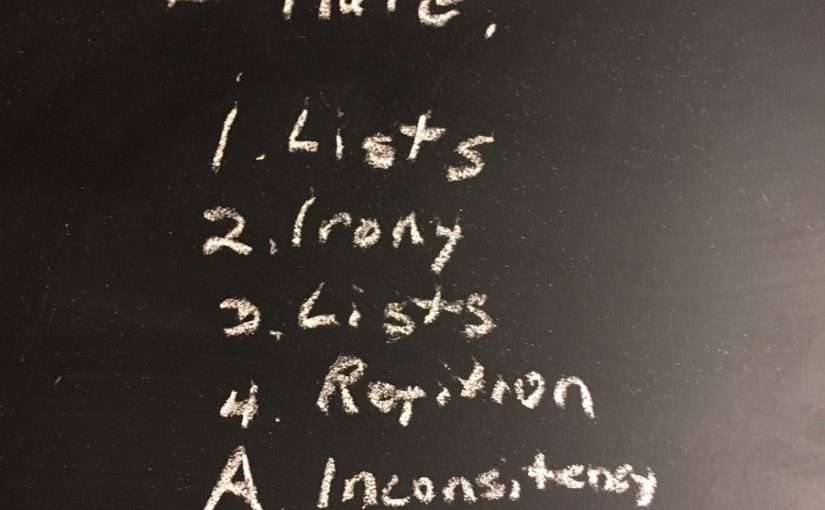 I Hate:
1. Lists
2. Irony
3. Lists
4. Repition
A Inconsitency